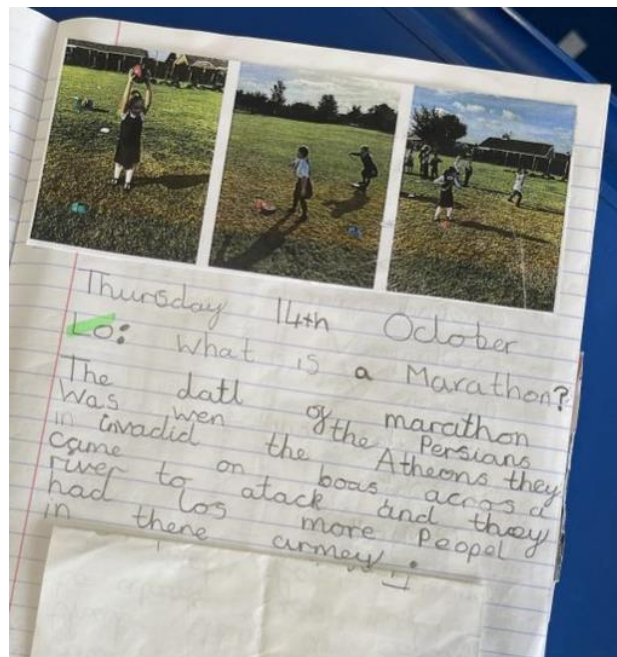 Thursday 14th October
Lo: What is a Marathon?
The datl of marathon
Was wen the Persians
in invadid the Atheons they
came on boas acros a
river to atack and they
had los more Peopel
in there armey.